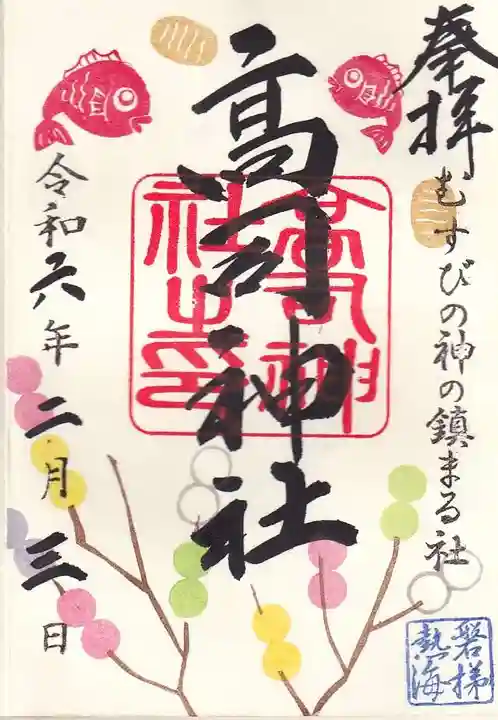 奉拝
むすびの神の鎮まる社
高司神社
高司神社之印
令和六年二月三日
磐梯
熱海